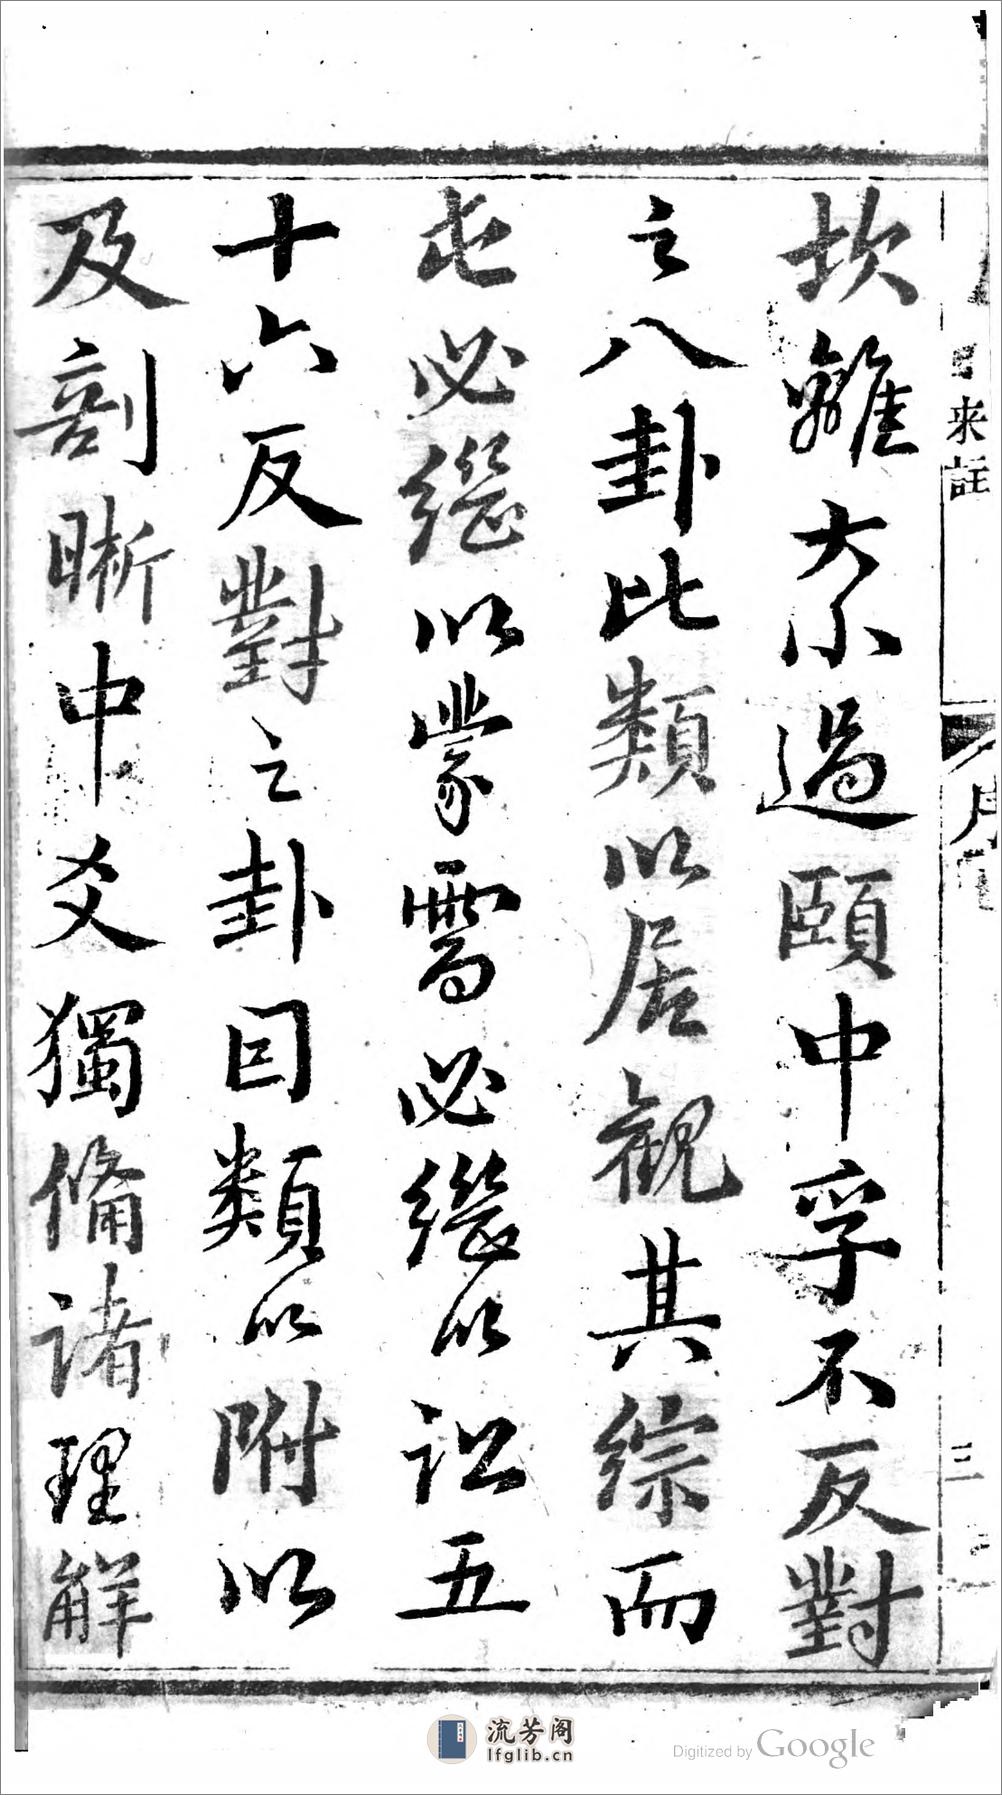 坎離大小過頤中孚不反對
之八卦比類以居觀其綜而
屯必繼以蒙需必繼以訟五
十六反對之卦因類以附以
及剖晰中爻獨備諸理觧
来註
序
三
流芳阁
lfglib.cn
Digitized by Google